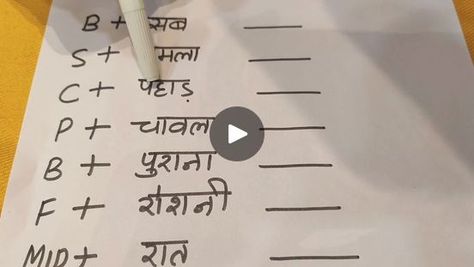 B + सब
S +
C + पहाड़
P + चावल
B + पुराना
F + रोशनी
MID + रात